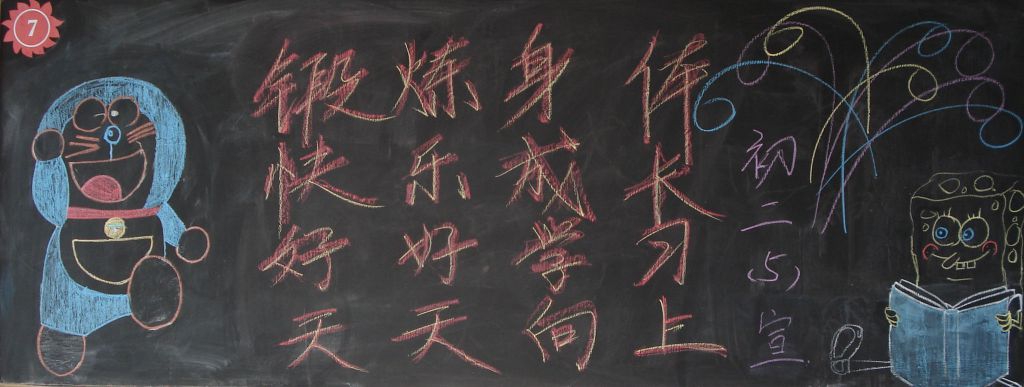 7
锻炼身体
快乐成长
好好学习
天天向上
初二(5)宣